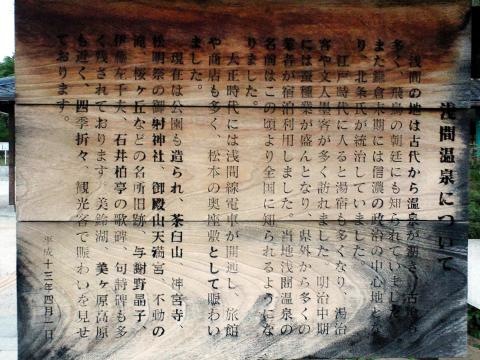 浅間温泉について
浅間の地は古代から温泉が湧き、古墳も
多く、飛鳥の朝廷にも知られていました。
また鎌倉末期には信濃の政治の中心地とな
り、北条氏が統治していました。
江戸時代に入ると湯宿も多くなり、湯治
客や文人墨客が多く訪れました。明治中期
には蚕種業が盛んとなり、県外から多くの
業者が宿泊利用しました。当地浅間温泉の
名前はこの頃より全国に知られるようにな
りました。
大正時代には浅間線電車が開通し、旅館
や商店も多く、松本の奥座敷として賑わい
ました。
現在は公園も造られ、茶臼山 神宮寺、
松明祭の御射神社、御殿山天満宮、不動の
滝、桜ヶ丘などの名所旧跡、与謝野晶子、
伊藤左千夫、石井柏亭の歌碑、句詩碑も多
く残されております。美鈴湖、美ヶ原高原
も近く、四季折々、観光客で賑わいを見せ
ております。
平成十三年四月一日